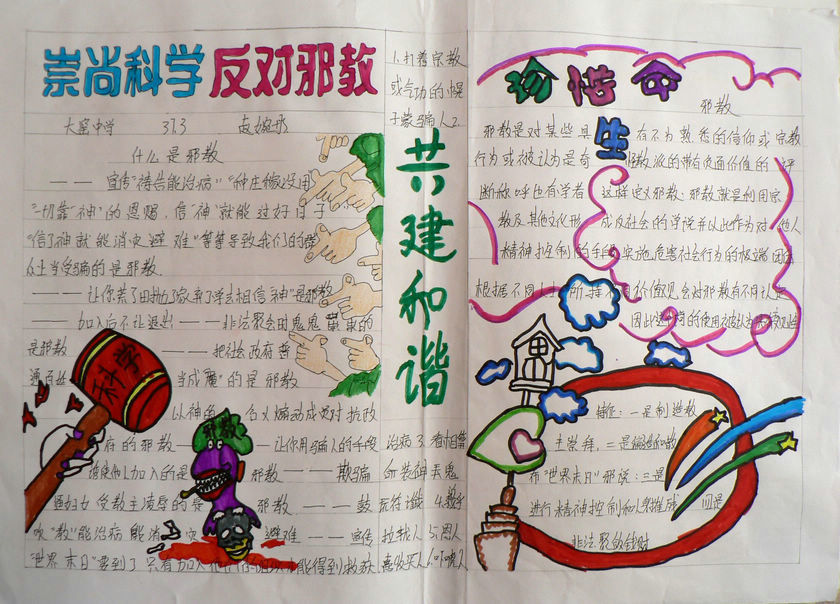 崇尚科学 反对邪教
大窑中学 37.3
什么是邪教
——宣传“祷告能治病”“种庄稼没用
“一切靠‘神’的恩赐,信‘神’就能过好日子”
“信了神就能消灾避难”等等导致我们的群
众上当受骗的是邪教.
——让你荒了田抛了家弃了学去相信“神”是邪教
——加入后不让退出——非法聚会的鬼鬼祟祟的
是邪教——把社会政府
通百姓当成魔的是邪教
以神的名义煽动成员对抗政
府的邪教——让你用骗人的手段
加入的是邪教——欺骗
妇女受教主凌辱的是邪教——鼓
吹“教”能治病能消灾避难——宣传
“世界末日”要到了只有加入他们才能得到救赎
科学
邪教
1.打着宗教
或气功的幌
子蒙骗人2.
共建和谐
治病3.看相算
命装神弄鬼
4.教
拉拢人5.恩人
人
珍惜生命
邪教
邪教是对某些具有不为熟悉的信仰或宗教
行为或被认为是奇怪教派的带有负面价值的评
断称呼也有学者这样定义邪教:邪教就是利用宗
教及其他文化形成反社会的学说并以此作为对他人
精神控制的手段实施危害社会行为的极端团体
根据不同人士所持不同价值观会对邪教有不同认定
因此这个词的使用被认为
特征:一是制造教
主崇拜,二是编造和散
布“世界末日”邪说:三是
进行精神控制和人身摧残 四是
非法聚敛钱财